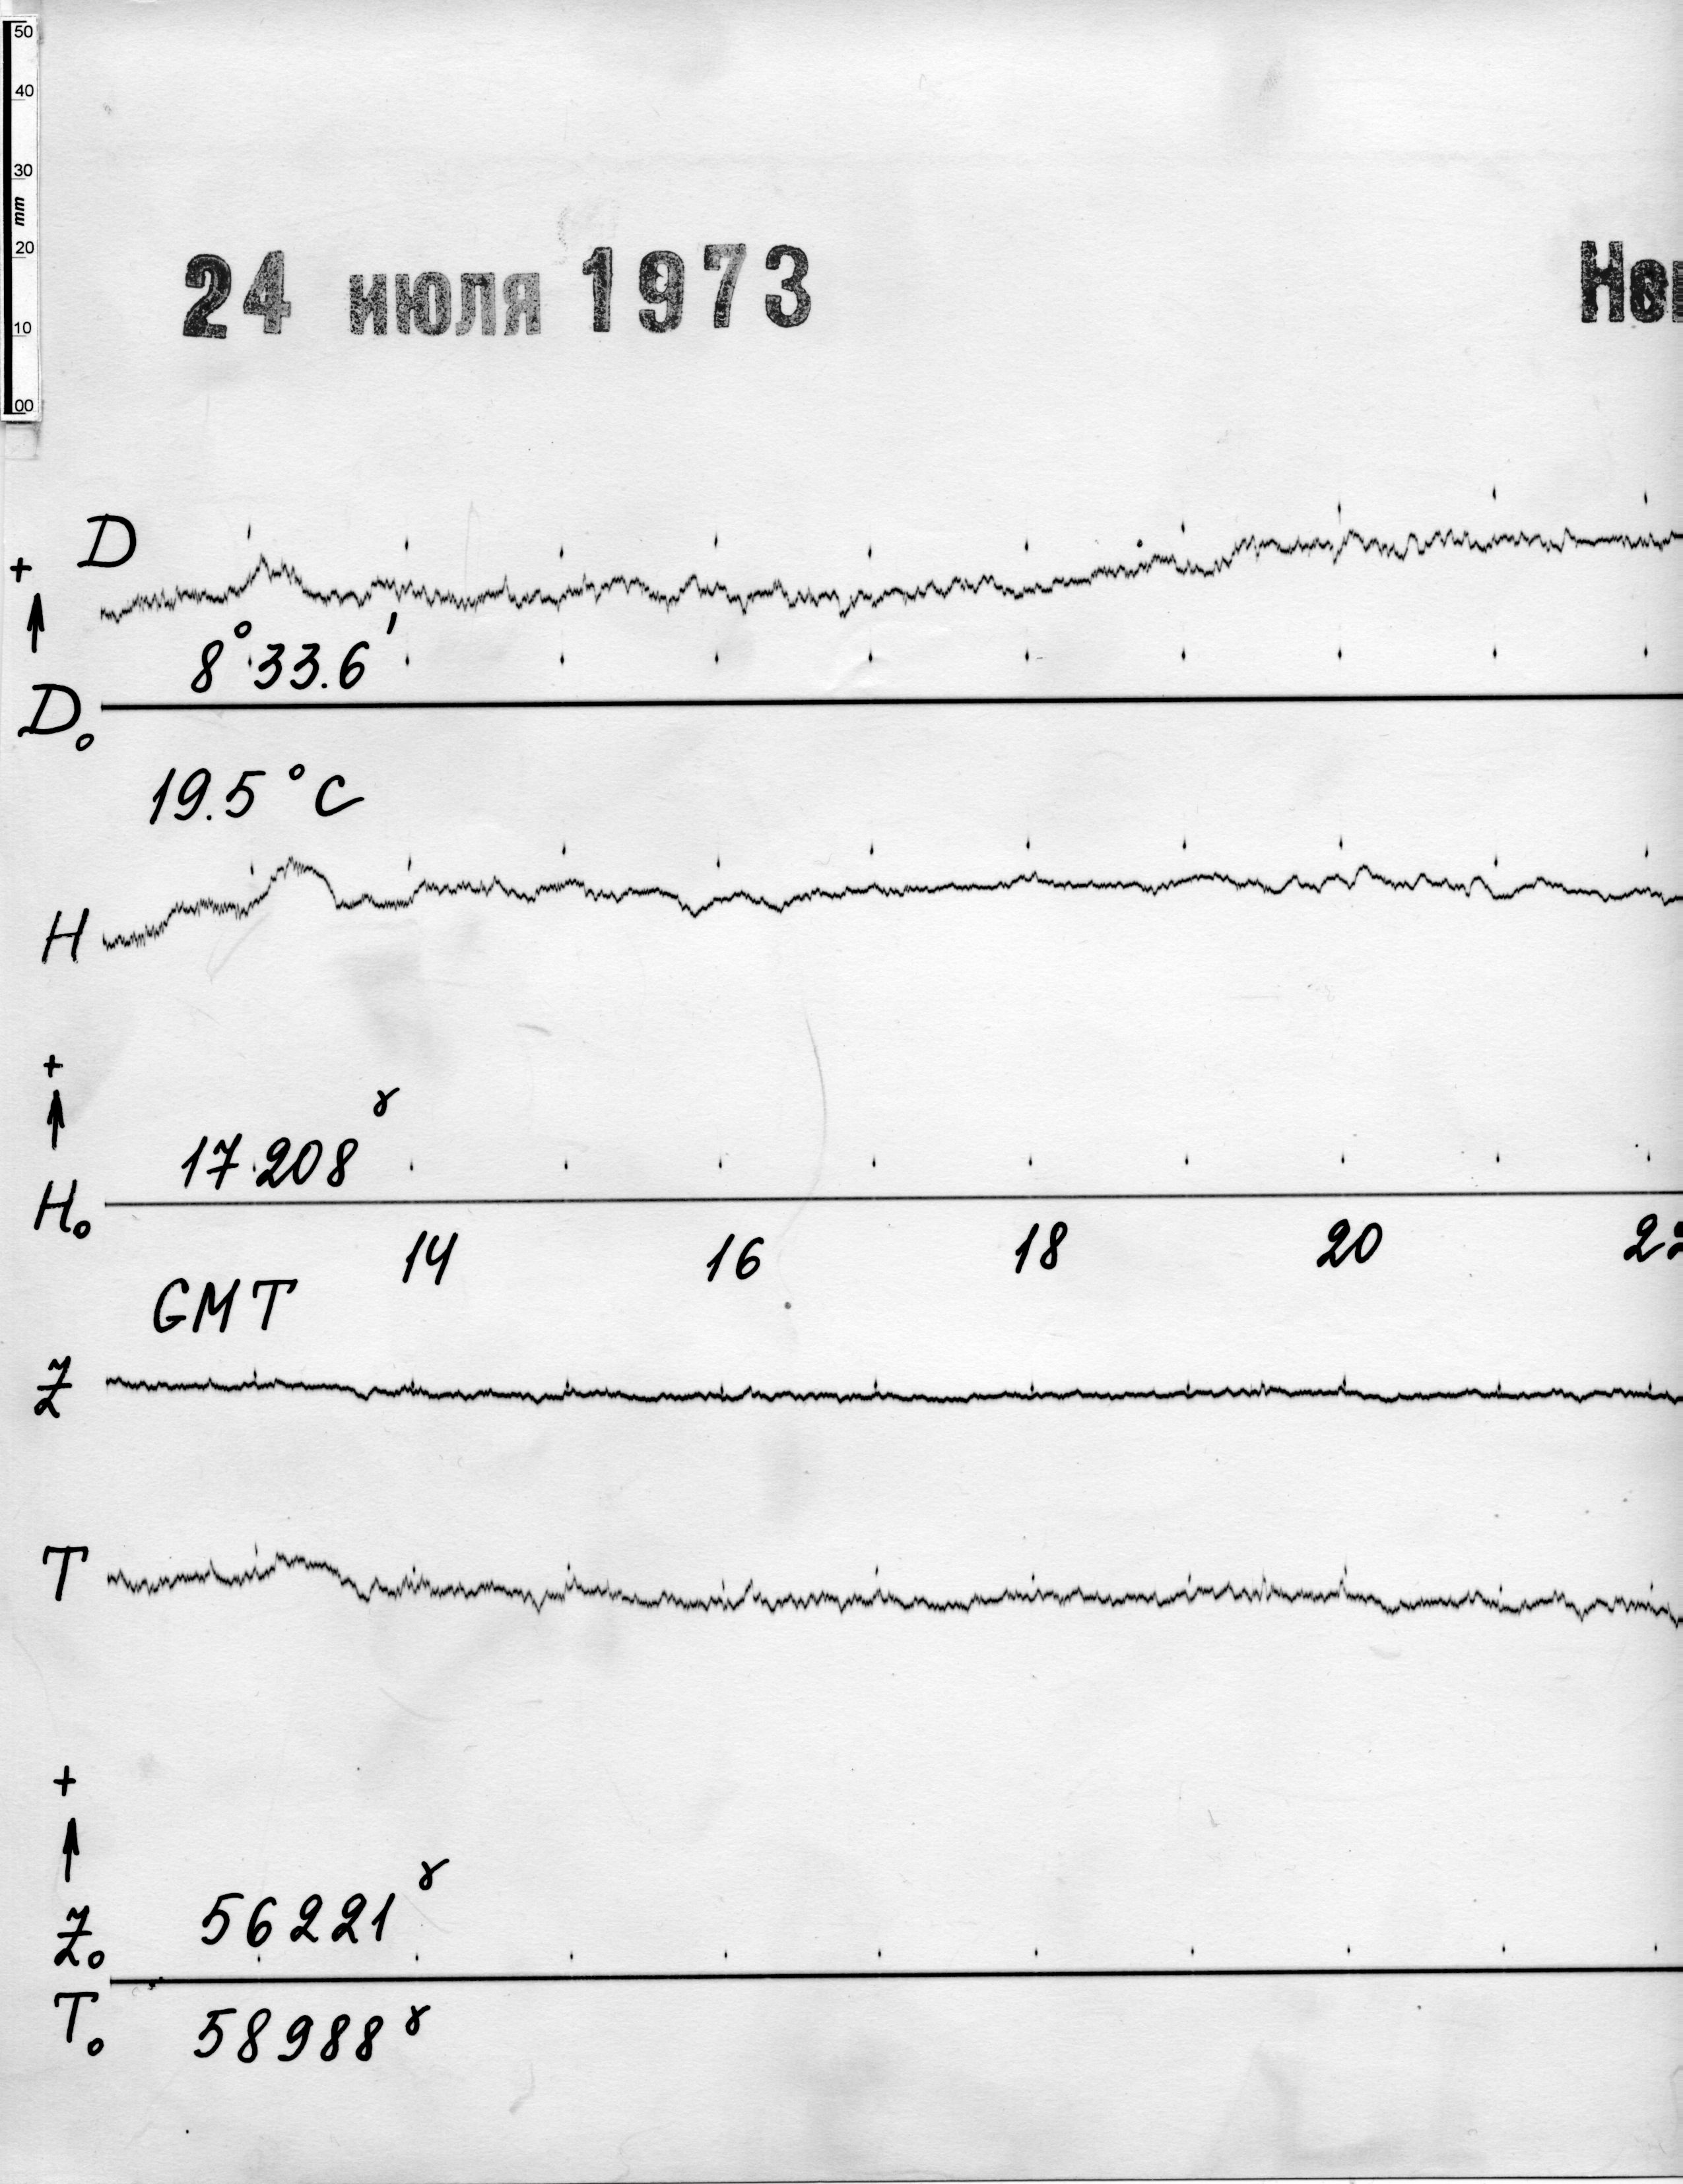 50
40
30
mm
20
10
00
24 июля 1973
D
+
8°33.6'
D₀
19.5°C
H
+
17208ˠ
H₀
14 16 18 20 22
GMT
Z
T
+
56221ˠ
Z₀
T₀
58988ˠ